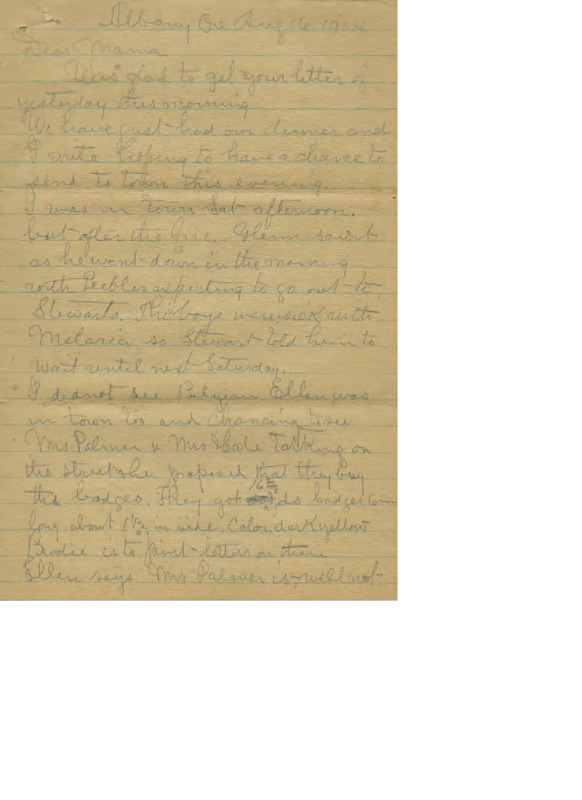 Albany Ore Aug 16 1904
Dear Mama
Was glad to get your letter of
yesterday this morning
We have just had our dinner and
I write hoping to have a chance to
send to town this evening.
I was in town Sat afternoon.
but after the fire. Glenn saw it
as he went down in the morning
with Peebler expecting to go out to
Stewarts. The boys were sick with
Malaria, so Stewart told him to
wait until next Saturday.
I did not see Ellen was
in town too and chancing to see
Mrs Palmer & Mrs Hale Talking on
the street she proposed that they buy
the badges. They got yds badges 6 in
long about 1 1/2 in wide. Color, dark yellow
Brodie is to print letters on them
Ellen says Mrs Palmer is well not